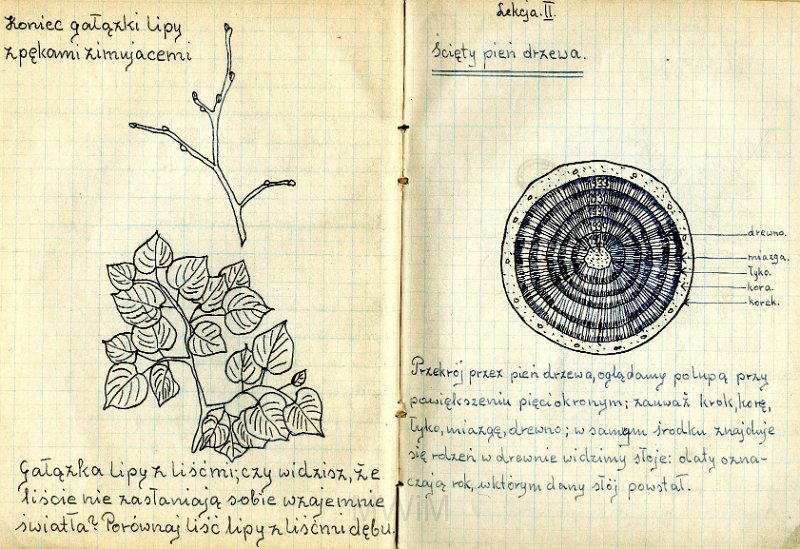 Koniec gałązki lipy
z pękami zimujacemi
Gałązka lipy z liśćmi; czy widzisz, że
liście nie zasłaniają sobie wzajemnie
światła? Porównaj liść lipy z liśćnu dębu.
Lekcja. II.
Ścięty pień drzewa.
1933
drewno.
miazga.
łyko.
kora.
korek.
Przekrój przez pień drzewa, oglądamy pod lupą przy
powiększeniu pięciokronym; zauważ krok, korę,
łyko, miazgę, drewno; w samym środku znajduje
się rdzeń w drewnie widzimy słoje: daty ozna-
czają rok, w którym dany słój powstał.
MWiM